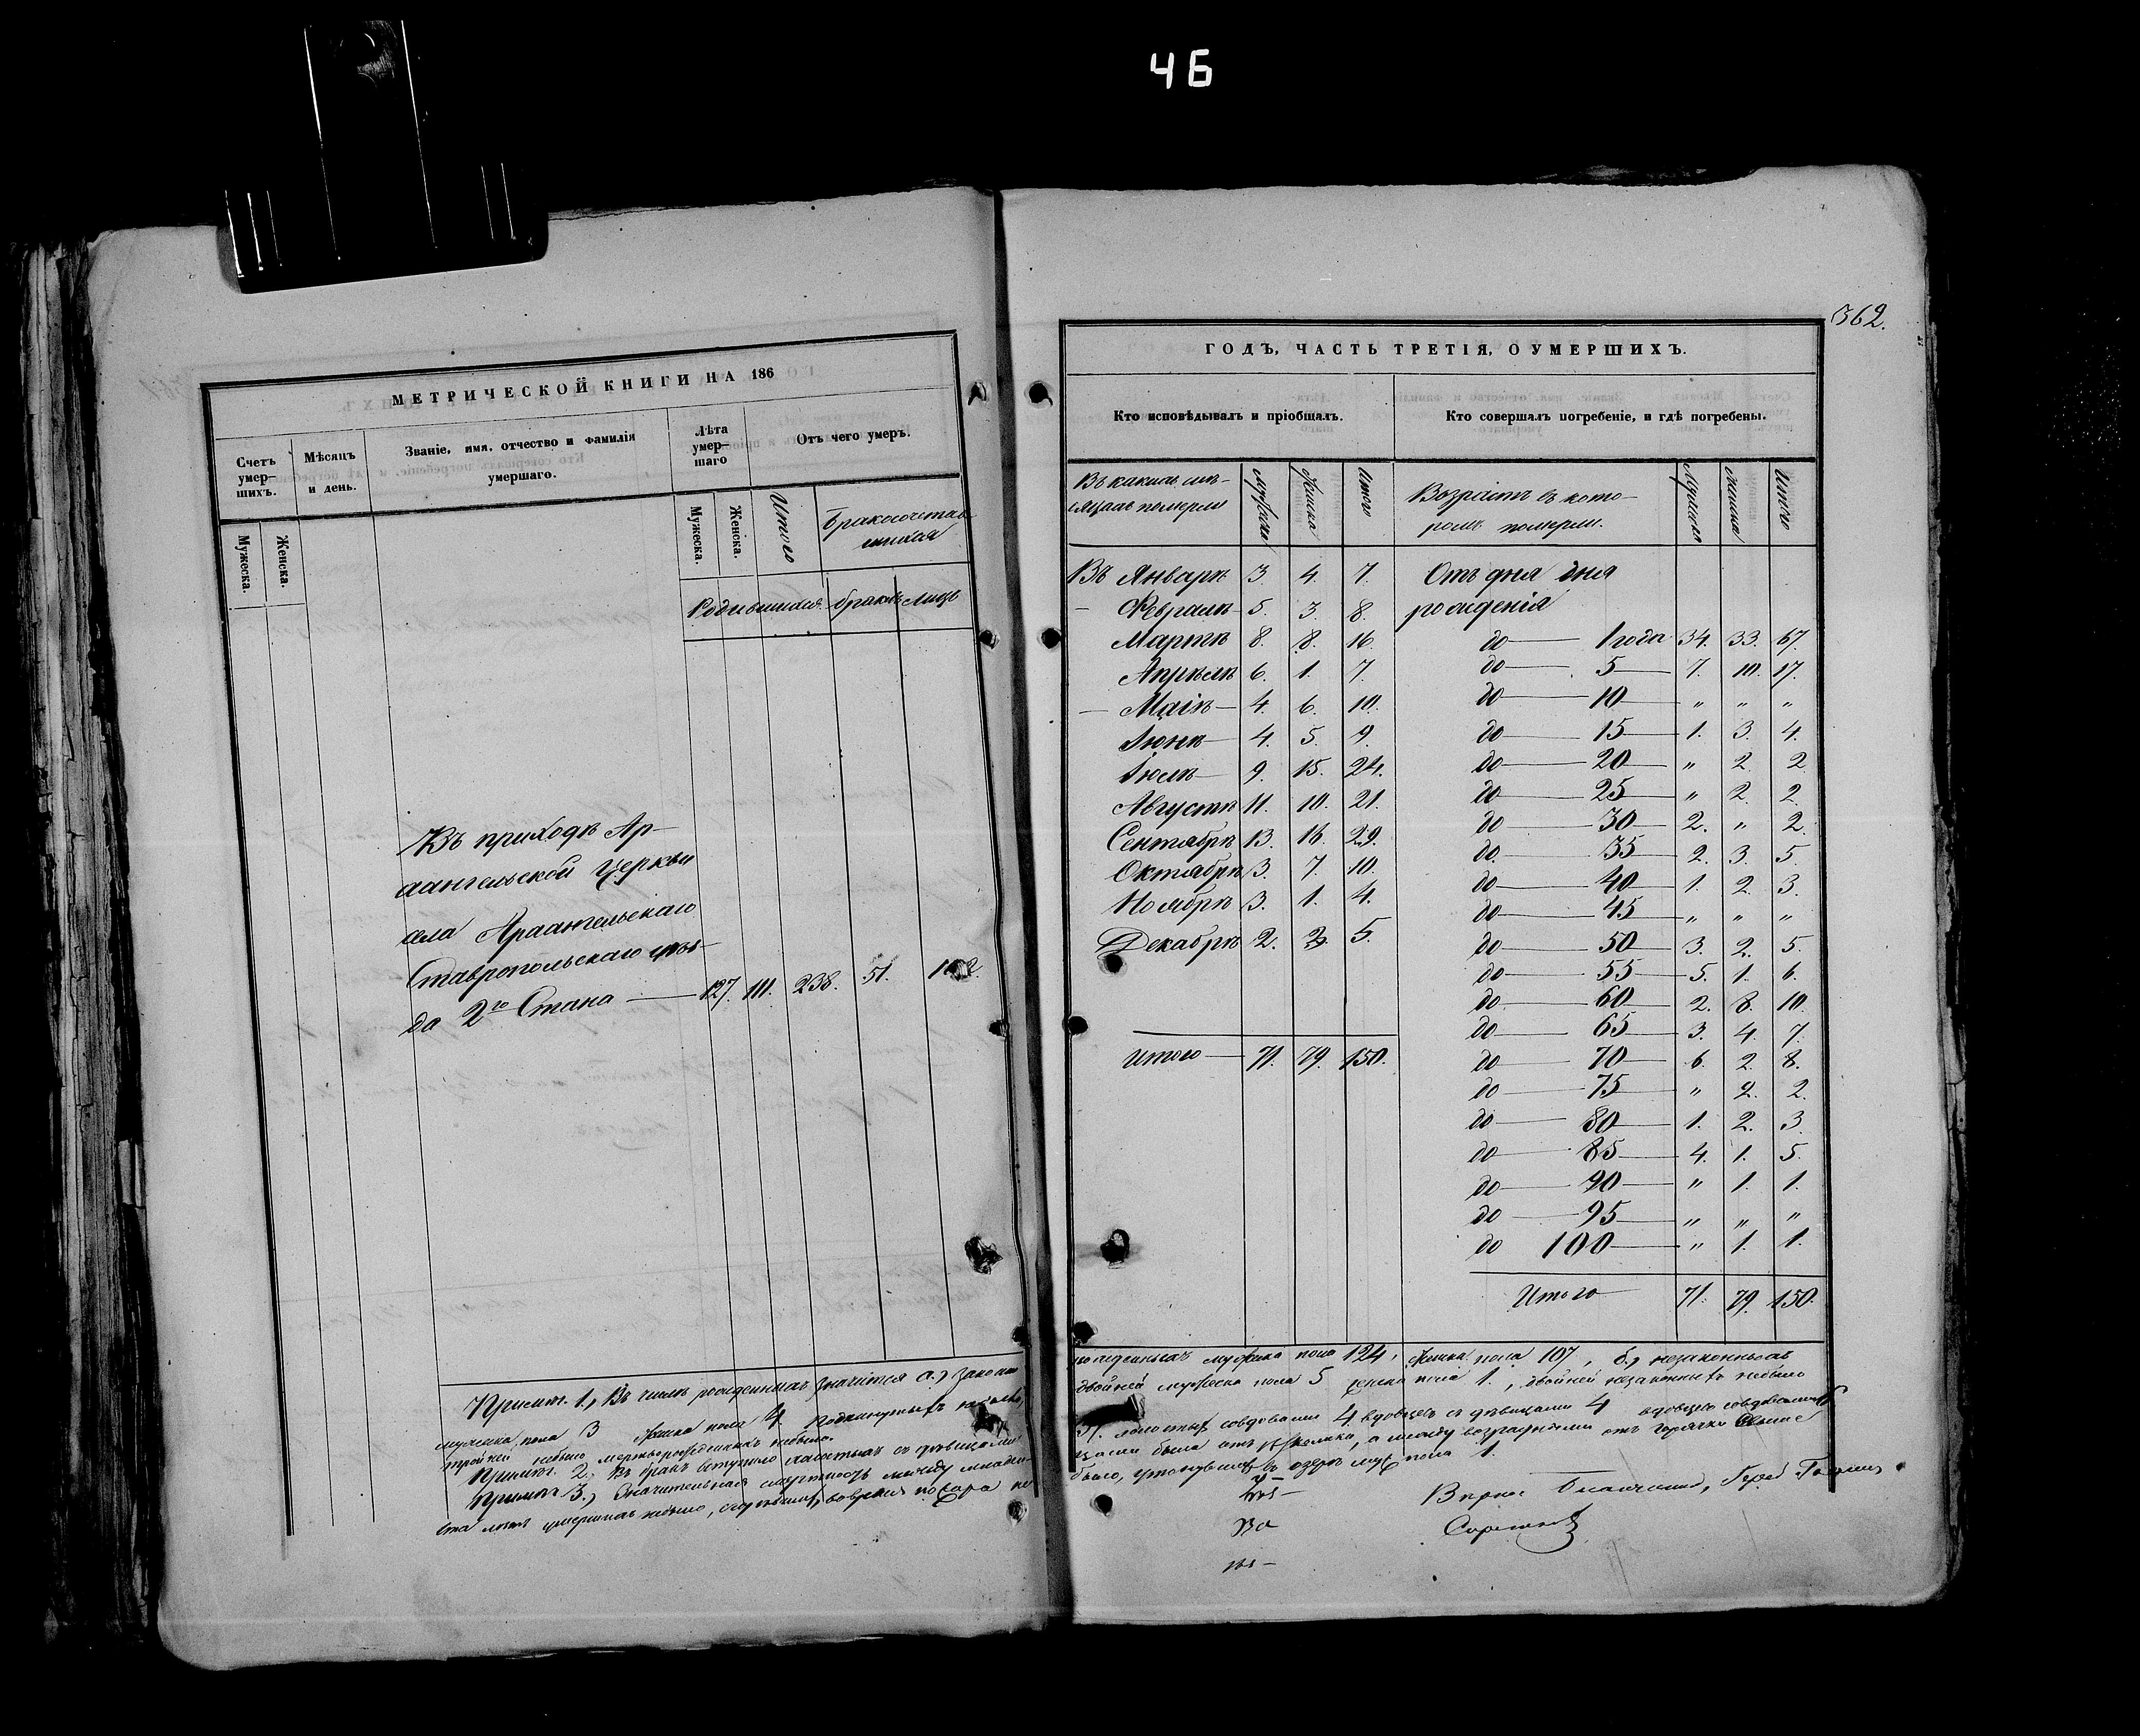 46
362.
МЕТРИЧЕСКОЙ КНИГИ НА 186
Счетъ умер– шихъ.
Мѣсяцъ и день.
Званіе, имя, отчество и фамилія умершаго.
Лѣта умер– шаго
Отъ чего умеръ.
Мужеска.
Женска.
Мужеска.
Женска.
Итого
Бракосочетав
шихся
Родившихся
браковъ
лицъ
Въ приходѣ Ар–
хангельской церкви
села Архангельскаго
Ставропольскаго уѣз–
да 2го Стана — 127. 111. 238. 51. 102.
Примѣч. 1, Въ числѣ рожденныхъ значится а.) законно
мужеска пола 3 женска пола 4 подкинутыхъ
тройней небыло мертворожденныхъ небыло.
Примѣч. 2, Въ бракъ вступило холостыхъ съ дѣвицами
Примѣч. 3, Значительная смертность между младен–
ста лѣтъ умершихъ небыло, вовремя пожара не
ГОДЪ, ЧАСТЬ ТРЕТІЯ, О УМЕРШИХЪ.
Кто исповѣдывалъ и пріобщалъ.
Кто совершалъ погребеніе, и гдѣ погребены.
Въ какихъ мѣ–
сяцахъ померли
мужеска
женска
Итого
Возрастъ въ кото–
ромъ померли.
Мужеска
женска
Итого
Въ Январѣ 3. 4. 7.
— Февралѣ 5. 3. 8.
Мартѣ 8. 8. 16.
Апрѣлѣ 6. 1. 7.
— Маіѣ — 4. 6. 10.
Іюнѣ — 4. 5. 9.
Іюлѣ — 9. 15. 24.
Августѣ 11. 10. 21.
Сентябрѣ 13. 16. 29.
Октябрѣ 3. 7. 10.
Ноябрѣ 3. 1. 4.
Декабрѣ 2. 3. 5.
Итого — 71. 79. 150.
Отъ дня дня
рожденія
до — 1 года 34. 33. 67.
до — 5 — 7. 10. 17.
до — 10 — " " "
до — 15 — 1. 3. 4.
до — 20 — " 2. 2
до — 25 — " 2. 2.
до — 30 — 2. " 2.
до — 35 — 2. 3. 5.
до — 40 — 1. 2. 3.
до — 45 — " " "
до — 50 — 3. 2. 5.
до — 55 — 5. 1. 6.
до — 60 — 2. 8. 10.
до — 65 — 3. 4. 7.
до — 70 — 6. 2. 8.
до — 75 — " 2. 2.
до — 80 — 1. 2. 3.
до — 85 — 4. 1. 5.
до — 90 — " 1. 1.
до — 95 — " " "
до 100 — " 1. 1.
Итого 71. 79. 150.
рожденныхъ мужеска пола 124, женска пола 107, б.) незаконныхъ
двойней мужеска пола 5 женска пола 1., двойней незаконныхъ небыло
холостыхъ совдовами 4 вдовцевъ съ дѣвицами 4 вдовцевъ совдовами
цами была отъ а между возрастными отъ горячки Свыше
было, утонувшихъ въ озерѣ муж пола 1.